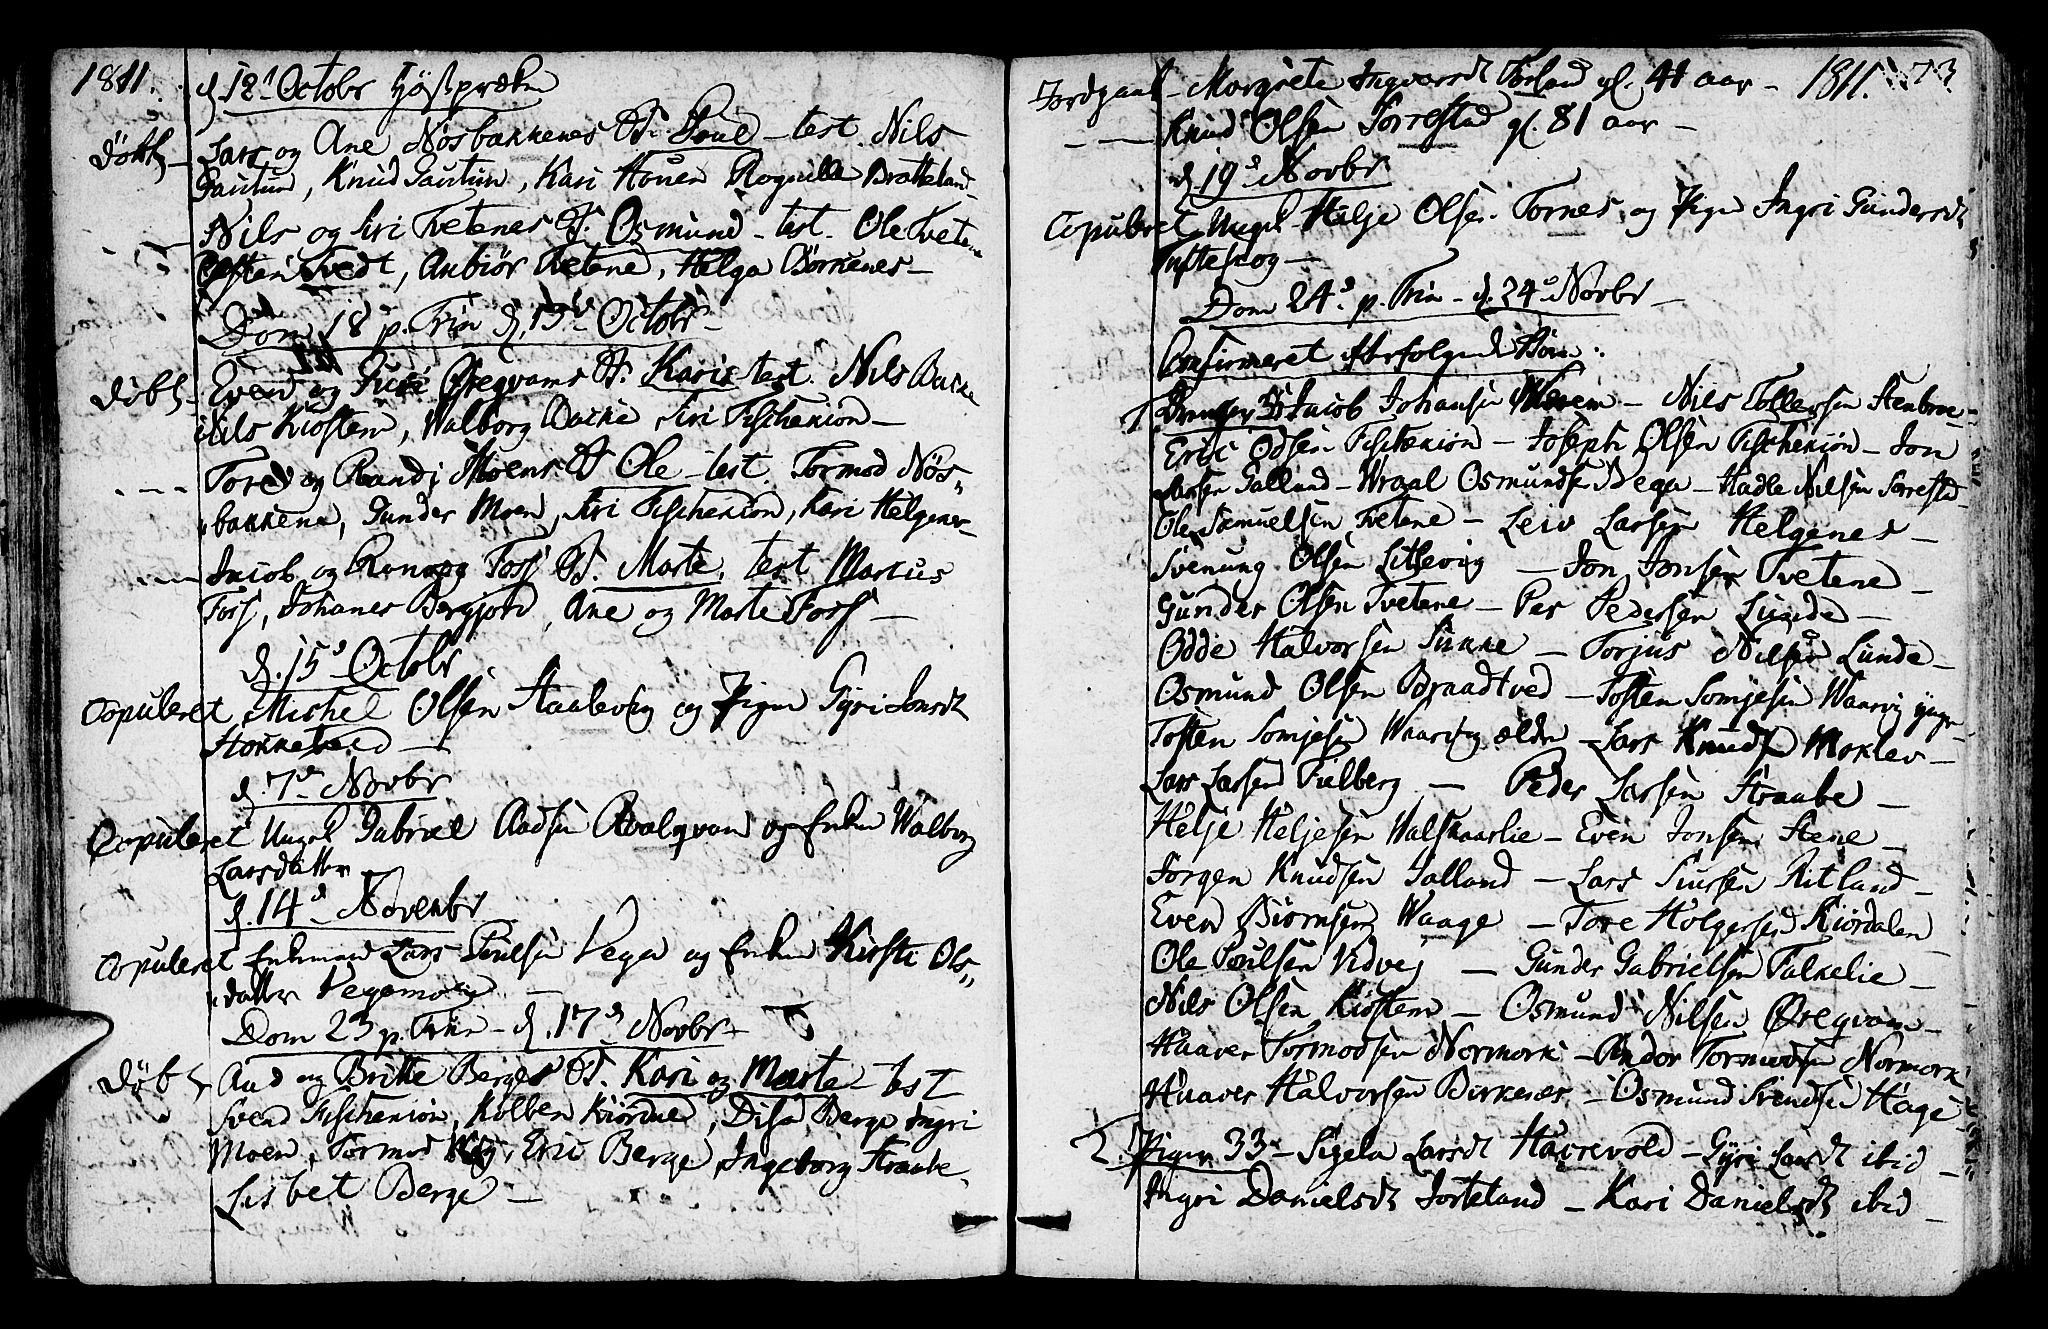 1811.
d 12t Octobr Høstpræken
Døbt - Lars og Ane Nøsbakkenes B. Poul - test. Nils
Santum, Knud Santum, Kari Houen Rognille Bratteland
Nils og Siri Tvetenes B. Osmund - test. Ole Tvetene
Tvedt, Anbiør Tvetene, Helga Børkenes -
Dom 18 p. Trin d. 13d Octobr -
Døbt - Even og Øregvams B. Karie test. Nils Backe
Nils Kiosten, Walborg Backe Siri Fischekion -
--- Tore og Randi Moens B Ole - test. Tormod Nøs"
"bakkene, Gunder Moen, Siri Fischekion, Kari Helgenes -
--- Jacob og Ronnog Foss B. Marte, test Marcus
Foss, Johanes Bergjord, Ane og Marte Foss -
d. 15d Octobr
Copuleret Michel Olsen Aalevig og Pigen Gyri Jonsdt
-
d. 7d Novbr
Copuleret Ungk. Gabriel Aadsen Roalqvam og Enken Walborg
Larsdatter
d. 14d Novembr
Copuleret Enkemand Lars Poulsen Vega og Enken Kirsti Ols"
"datter Vegamoen
Dom 23 p. Trin - d. 17d Novbr -
Døbt Aad og Britte Berges B. Kari og Marte - test
Svend Fischekion, Kolben Kiordal, Disa Berge Ingri
Moen, Tormod, Eric Berge, Ingeborg Straabe
Lisbet Berge -
Jordgaal - Margrete Ingvarsdt gl. 41 aar - 1811. 73
- -- Knud Olsen Sorrestad gl. 81 aar -
d 19d Novbr
Copuleret Ungk. Helje Olsen Tornes og Pigen Ingri Gundersdt
Tufteskog -
Dom 24d p. Trin - d. 24d Novbr -
Confirmeret efterfølgende Børn:
1. Drenger Jacob Johansen - Nils Tollefsen Stenbroe -
Eric Odsen Fischekion - Joseph Olsen Fischekion - Jon
Larsen Galland - Wraal Osmundsen Vega - Hadle Nilsen Sorrestad
Ole Samuelsen Tvetene - Leiv Larsen Helgenes -
Svenung Olsen Litlevig - Jon Jonsen Tvetene -
Gunder Olsen Tvetene - Per Pedersen Lunde -
Odde Halvorsen Sukke - Torjus Nilsen Lunde -
Osmund Olsen Braadtved - Tosten Somjesen Waarvig yngr -
Tosten Somjesen Waarvig ældr - Lars Knuds Moklev -
Lars Larsen Fielberg - Peder Larsen Straabe -
Helje Heljesen Walskaarlie - Even Jonsen Stene -
Jørgen Knudsen Jalland - Lars Siursen Ritland -
Even Biørnsen Waage - Tore Holgersen Kiordalen
Ole Poulsen Vidvej - Gunder Gabrielsen Falkelie -
Nils Olsen Kiosten - Osmund Nilsen Øregvam -
Haaver Tormodsen Normork - Andor Tormodsen Normork
Haaver Halvorsen Birkenes - Osmund Svendsen Hage -
2. Piger 33 - Sigela Larsdt Haarevold - Gyri Larsdt ibid -
Ingri Danielsdt Jorteland - Kari Danielsdt ibid -